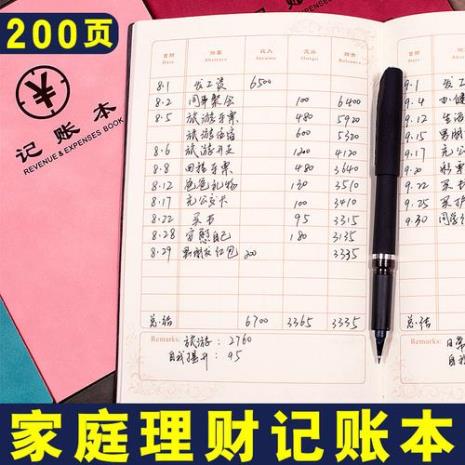 200页
记账本
REVENUE & EXPENSES BOOK
日期 摘要 收入 支出 结余
Date Abstract Income Balance
8.1 发工资 6500
8.2 同事聚会 100 6400
8.5 旅游车票 480 5920
旅游住宿 600 5320
8.6 旅游开支 1200 4120
8.8 回程车票 480 3640
8.12 爸爸礼物 130 3510
8.17 充公交卡 100 3410
8.22 买书 95 3315
8.28 安慰自己 180 3135
8.29 男朋友红包 200 3335
总结 6700 3365 3335
Remarks: 旅游: 2760
自我提升: 95
9.1
9.4
9.22
9.25
9.30
总结
家庭理财记账本